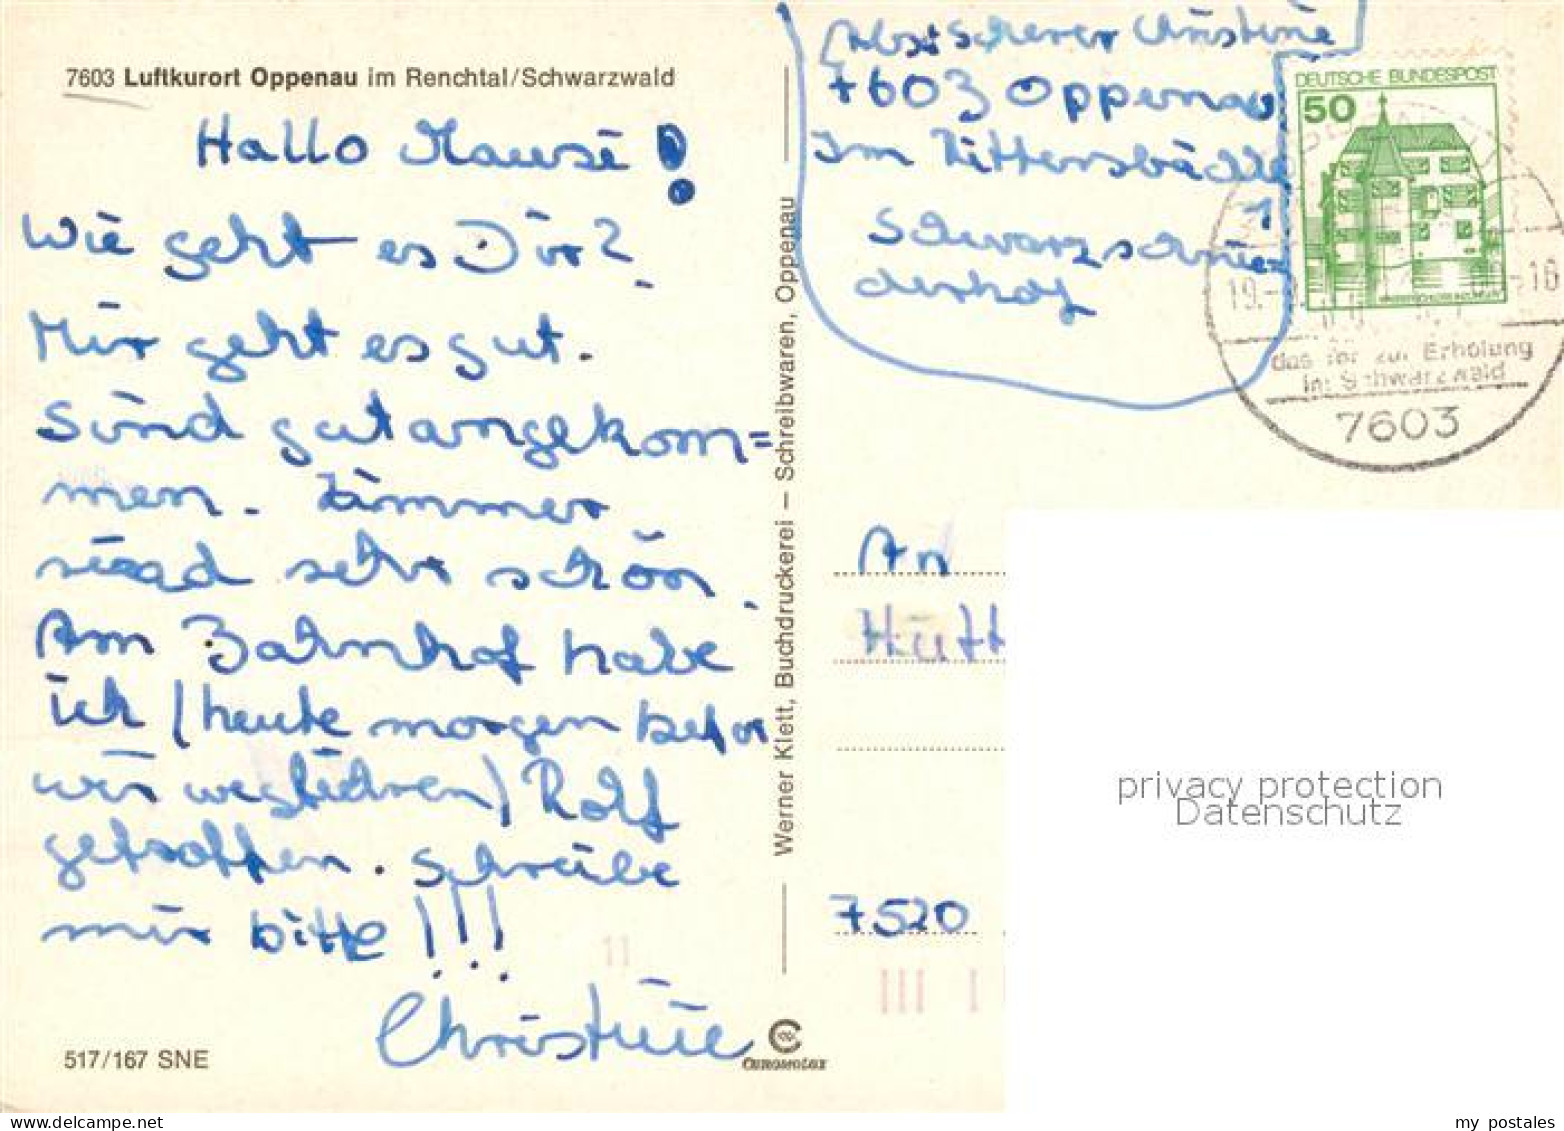 7603 Luftkurort Oppenau im Renchtal/Schwarzwald
Hallo Mausi!
Wie geht es Dir?
Mir geht es gut.
Sind gut angekom=
men. Zimmer
sind sehr schön.
Am Bahnhof habe
ich (heute morgen bevor
wir wegfuhren) Rolf
getroffen. Schreibe
mir bitte!!!
Christine
517/167 SNE
Werner Klett, Buchdruckerei – Schreibwaren, Oppenau
CHROMOLUX
Abs: Scherer Christine
7603 Oppenau
Im
1
Schwarzschnie
derhof
DEUTSCHE BUNDESPOST
50
das Tor zur Erholung
im Schwarzwald
7603
An
Hutt
7520
privacy protection
Datenschutz
my postales